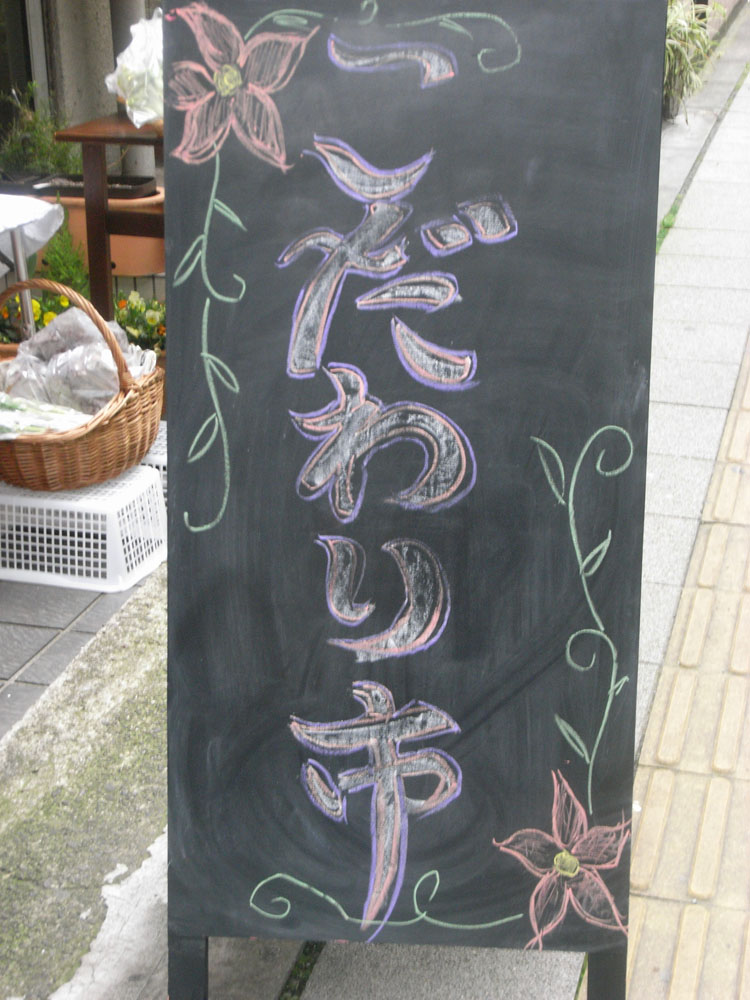 こだわり市